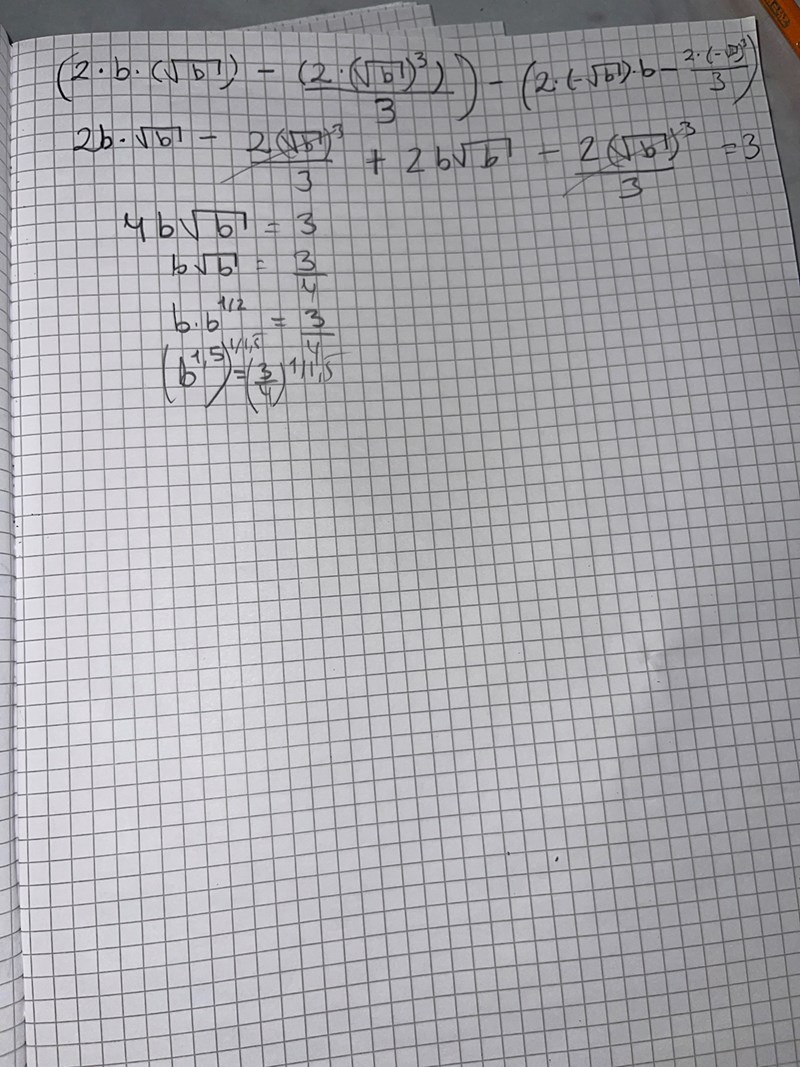 (2·b·(√b) - (2·(√b)³)/3) - (2·(-√b)·b - 2·(-√b)³/3)
2b·√b - 2(√b)³/3 + 2b√b - 2(√b)³/3 = 3
4b√b = 3
b√b = 3/4
b·b^1/2 = 3/4
(b^1,5)^1/1,5 = (3/4)^1/1,5